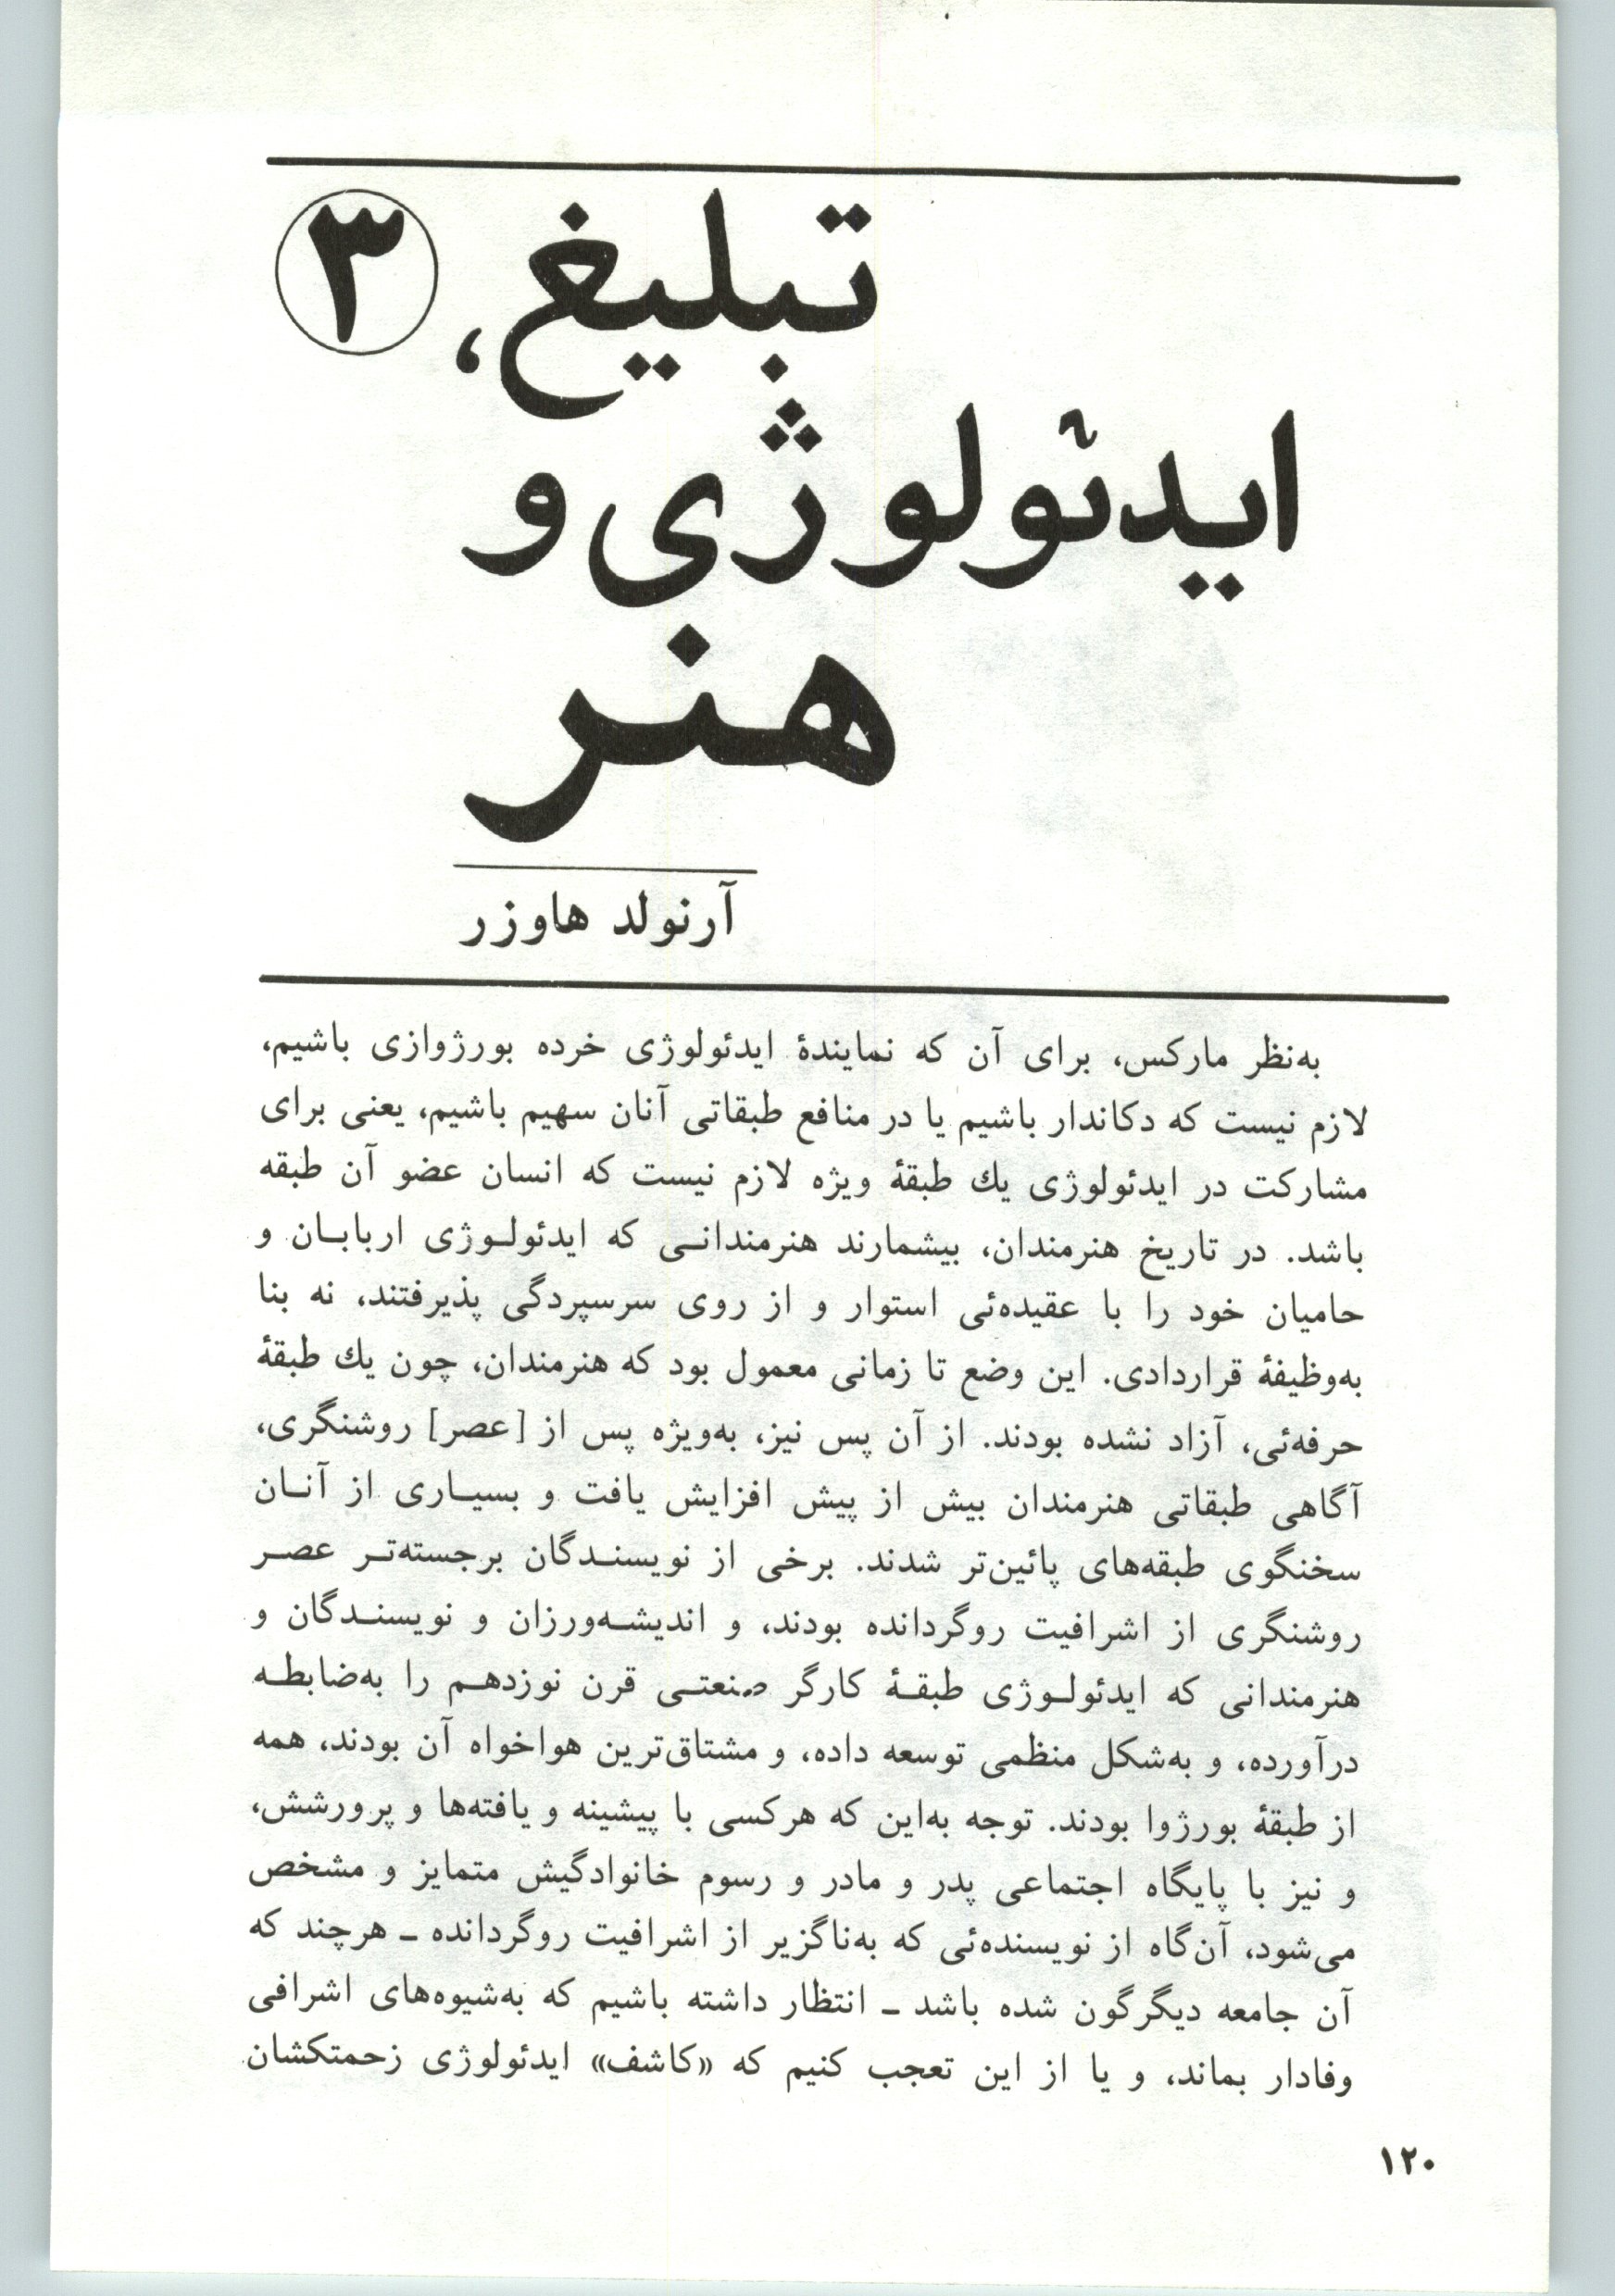 تبلیغ، ۳
ایدئولوژی و
هنر
آرنولد هاوزر
به‌نظر مارکس، برای آن که نمایندهٔ ایدئولوژی خرده بورژوازی باشیم،
لازم نیست که دکاندار باشیم یا در منافع طبقاتی آنان سهیم باشیم، یعنی برای
مشارکت در ایدئولوژی یك طبقهٔ ویژه لازم نیست که انسان عضو آن طبقه
باشد. در تاریخ هنرمندان، بیشمارند هنرمندانی که ایدئولوژی اربابان و
حامیان خود را با عقیده‌ئی استوار و از روی سرسپردگی پذیرفتند، نه بنا
به‌وظیفهٔ قراردادی. این وضع تا زمانی معمول بود که هنرمندان، چون یك طبقهٔ
حرفه‌ئی، آزاد نشده بودند. از آن پس نیز، به‌ویژه پس از [عصر] روشنگری،
آگاهی طبقاتی هنرمندان بیش از پیش افزایش یافت و بسیاری از آنان
سخنگوی طبقه‌های پائین‌تر شدند. برخی از نویسندگان برجسته‌تر عصر
روشنگری از اشرافیت روگردانده بودند، و اندیشه‌ورزان و نویسندگان و
هنرمندانی که ایدئولوژی طبقهٔ کارگر صنعتی قرن نوزدهم را به‌ضابطه
درآورده، و به‌شکل منظمی توسعه داده، و مشتاق‌ترین هواخواه آن بودند، همه
از طبقهٔ بورژوا بودند. توجه به‌این که هرکسی با پیشینه و یافته‌ها و پرورشش،
و نیز با پایگاه اجتماعی پدر و مادر و رسوم خانوادگیش متمایز و مشخص
می‌شود، آن‌گاه از نویسنده‌ئی که به‌ناگزیر از اشرافیت روگردانده ـ هرچند که
آن جامعه دیگرگون شده باشد ـ انتظار داشته باشیم که به‌شیوه‌های اشرافی
وفادار بماند، و یا از این تعجب کنیم که «کاشف» ایدئولوژی زحمتکشان
۱۲۰